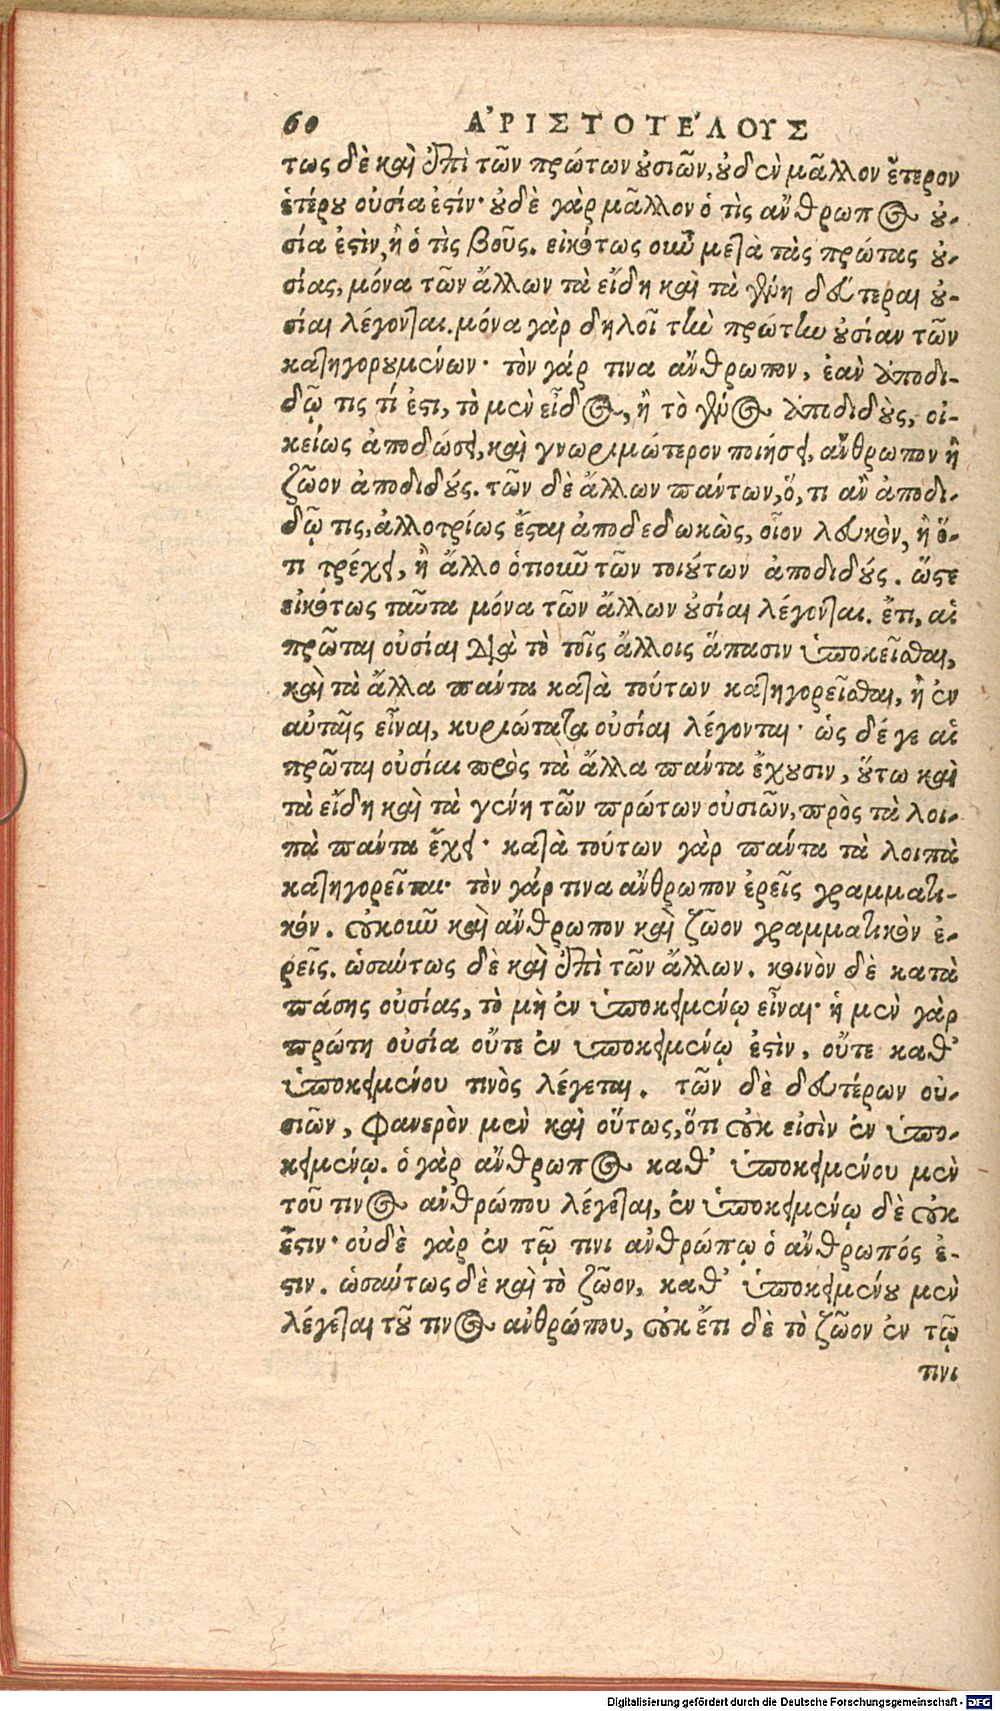 60 ἈΡΙΣΤΟΤΈΛΟΥΣ
τως δὲ καὶ ἐπὶ τῶν πρώτων ȣσιῶν, ȣδὲν μᾶλλον ἕτερον
ἑτέρȣ οὐσία ἐϛίν· ȣδὲ γὰρ μᾶλλον ὁ τὶς ἄνθρωπος ȣ-
σία ἐϛὶν, ἢ ὁ τὶς βοῦς. εἰκότως οὖν μετὰ τὰς πρώτας ȣ-
σίας, μόνα τῶν ἄλλων τὰ εἴδη καὶ τὰ γένη δεύτεραι ȣ-
σίαι λέγονται. μόνα γὰρ δηλοῖ τὴν πρώτην ȣσίαν τῶν
κατηγορȣμένων· τὸν γάρ τινα ἄνθρωπον, ἐὰν ἀποδι-
δῷ τις τί ἐϛι, τὸ μὲν εἶδος, ἢ τὸ γένος ἀποδιδȣ̀ς, οἰ-
κείως ἀποδώσει, καὶ γνωριμώτερον ποιήσει, ἄνθρωπον ἢ
ζῶον ἀποδιδȣ́ς. τῶν δὲ ἄλλων πάντων, ὅ, τι ἂν ἀποδι-
δῷ τις, ἀλλοτρίως ἔϛαι ἀποδεδωκὼς, οἷον λευκὸν, ἢ ὅ-
τι τρέχει, ἢ ἄλλο ὁτιοῦν τῶν τοιȣ́των ἀποδιδȣ́ς. ὥϛε
εἰκότως ταῦτα μόνα τῶν ἄλλων ȣσίαι λέγονται. ἔτι, αἱ
πρῶται οὐσίαι διὰ τὸ τοῖς ἄλλοις ἅπασιν ὑποκεῖσθαι,
καὶ τὰ ἄλλα πάντα κατὰ τούτων κατηγορεῖσθαι, ἢ ἐν
αὐταῖς εἶναι, κυριώτατα οὐσίαι λέγονται· ὡς δέ γε αἱ
πρῶται οὐσίαι πρὸς τὰ ἄλλα πάντα ἔχȣσιν, ȣ́τω καὶ
τὰ εἴδη καὶ τὰ γένη τῶν πρώτων οὐσιῶν, πρὸς τὰ λοι-
πὰ πάντα ἔχει· κατὰ τούτων γὰρ πάντα τὰ λοιπὰ
κατηγορεῖται· τὸν γάρ τινα ἄνθρωπον ἐρεῖς γραμματι-
κόν. οὐκοῦν καὶ ἄνθρωπον καὶ ζῶον γραμματικὸν ἐ-
ρεῖς. ὡσαύτως δὲ καὶ ἐπὶ τῶν ἄλλων. κοινὸν δὲ κατὰ
πάσης οὐσίας, τὸ μὴ ἐν ὑποκειμένῳ εἶναι· ἡ μὲν γὰρ
πρώτη οὐσία οὔτε ἐν ὑποκειμένῳ ἐϛὶν, οὔτε καθ’
ὑποκειμένου τινὸς λέγεται. τῶν δὲ δευτέρων οὐ-
σιῶν, φανερὸν μὲν καὶ οὕτως, ὅτι οὐκ εἰσὶν ἐν ὑπο-
κειμένῳ. ὁ γὰρ ἄνθρωπος καθ’ ὑποκειμένου μὲν
τοῦ τινος ἀνθρώπου λέγεται, ἐν ὑποκειμένῳ δὲ οὐκ
ἔϛιν· οὐδὲ γὰρ ἐν τῷ τινι ἀνθρώπῳ ὁ ἄνθρωπός ἐ-
ϛιν. ὡσαύτως δὲ καὶ τὸ ζῶον, καθ’ ὑποκειμένȣ μὲν
λέγεται τȣ͂ τινος ἀνθρώπου, οὐκ ἔτι δὲ τὸ ζῶον ἐν τῷ
τινι
Digitalisierung gefördert durch die Deutsche Forschungsgemeinschaft - DFG